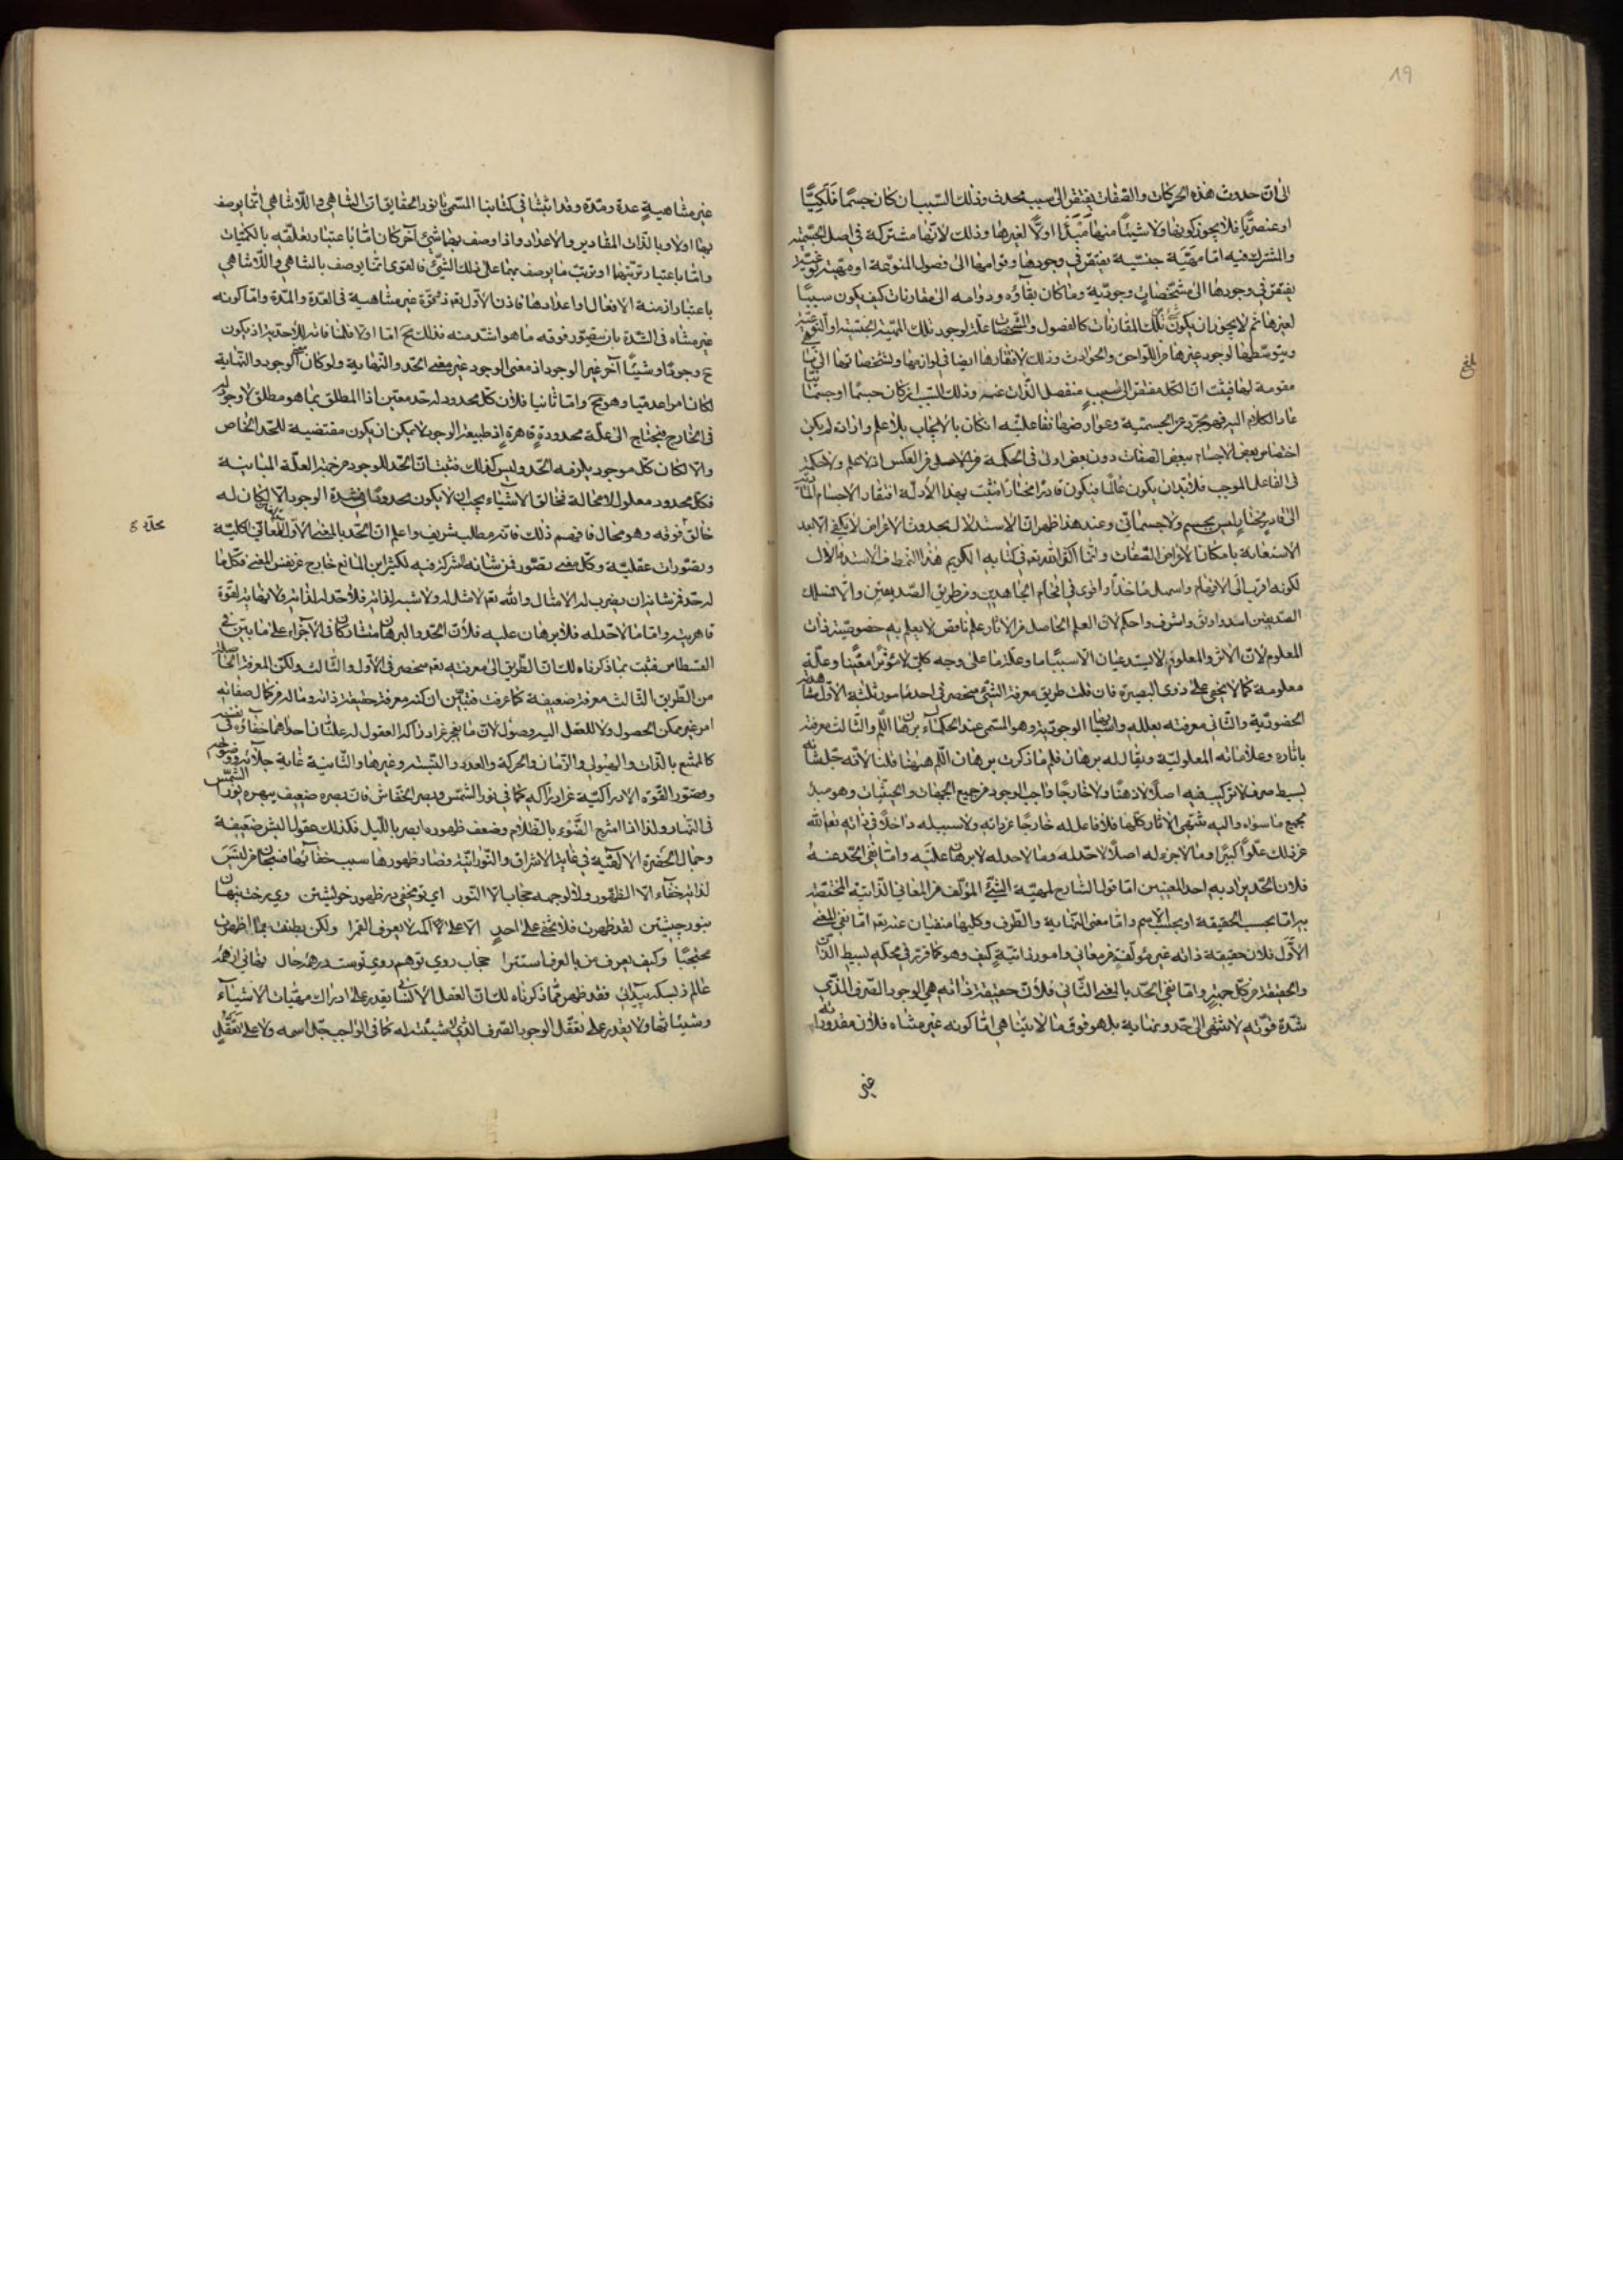 ١٩
الى ان حدوث هذه الحركات والصفات يفتقر الى سبب محدث وذلك السبب ان كان جسما فلكيّا
او عنصريّا فلا يجوز كونها ولا شيئا منها مبدءا اولا لغيرها وذلك لانها مشتركة فى اصل الجسمية
والمشترك فيه اما مهيّة جنسيّة يفتقر فى وجودها وقوامها الى فصول المنوعة او مهيّة نوعيّة
يفتقر فى وجودها الى مشخّصات وجوديّة وما كان بقاؤه ودوامه الى مقارنات كيف يكون سببا
لغيرها ثم لا يجوز ان يكون تلك المقارنات كالفصول والمشخصات علة لوجود تلك المهيّة الجنسيّة او النوعيّة
وبتوسطها لوجود غيرها من اللواحق والحوادث وذلك لافتقارها ايضا فى لوازمها وتشخصاتها الى
مقومة لها فيثبت ان الكل مفتقر الى سبب منفصل الذات عنه وذلك السبب ان كان جسما او جسمانيا
عاد الكلام اليه فهو مجرّد عن الجسميّة وعوارضها ففاعليّته ان كان بالايجاب بلا علم وارادة لم يكن
اختصاص بعض الاجسام ببعض الصفات دون بعض اولى فى الحكمة من الاصل من العكس اذ لا علم ولا حكمة
فى الفاعل الموجب فلابد ان يكون عالما فيكون قادرا مختارا فثبت بهذا الأدلّة افتقار الاجسام
الى قادر مختار ليس بجسم ولا جسمانى وعند هذا ظهر ان الاستدلال بحدوث الاعراض لا يكفى الا بعد
الاستعانة بامكان الاعراض الصفات وانما اكثر الله تعم فى كتابه الكريم هذا النمط من الاستدلال
لكونه اقرب الى الافهام واسهل ماخذا واقوى فى افحام الجاهدين ومن طريق الصديقين والا فمسلك
الصديقين اسد واوثق واشرف واحكم لان العلم الحاصل من الاثار علم ناقص لا يعلم به خصوصيّة ذات
المعلوم لان الاثر والمعلول لا يستدعيان الا سببا ما وعلّة ما على وجه كلى لا مؤثرا معيّنا وعلّة
معلومة كما لا يخفى على ذوى البصيرة فان قلت طريق معرفة الشئ منحصر فى احد امور ثلثة الاول مشاهدة
الحضوريّة والثانى معرفته بعلله واسبابها الوجوديّة وهو المسمى عند الحكماء برهان اللّم والثالث معرفته
باثاره وعلاماته المعلوليّة ويقال له برهان فلم ما ذكرت برهان اللّم ههنا قلنا لانّه جلّ شانه
بسيط صرف لا تركيب فيه اصلا لا ذهنا ولا خارجا واجب الوجود من جميع الجهات والحيثيات وهو مبدء
جميع ما سواه واليه منتهى الآثار كلها فلا فاعل له خارجا عن ذاته ولا سبب له داخلا فى ذاته تعم الله
عن ذلك علوّا كبيرا وما لا جزء له اصلا لا حدّ له وما لا حد له لا برهان عليه واما نفى الحدّ عنه
فلان الحدّ يراد به احد المعنيين اما قول الشارح لمهيّة الشئ المؤلف من المعانى الذاتيّة المختصة
به اما بحسب الحقيقة او بحسب الاسم واما معنى النهاية والطرف وكليهما منفيان عنه تعم اما نفى المعنى
الأوّل فلان حقيقة ذاته غير مؤلف من معانى وامور ذاتيّة كيف وهو كما قرّر فى محله بسيط الذات
والحقيقة من كل حيثيّة واما نفى الحدّ بالمعنى الثانى فلانّ حقيقة ذاته هى الوجود الصرف الذى
شدّة قوّته لا ينتهى الى حدّ ونهاية بل هو فوق ما لا يتناهى امّا كونه غير متناه فلان مقدوراته
غير
غير متناهية عدة ومدّة وقد اثبتنا فى كتابنا المسمى بانوار الحقايق ان التناهى واللاتناهى انما يوصف
بها اولا وبالذات المقادير والاعداد واذا وصف بهما شئ آخر كان امّا باعتبار تعلّقه بالكميّات
واما باعتبار ترتّبها او ترتّب ما يوصف بهما على ذلك الشئ فالقوى انما يوصف بالتناهى واللاتناهى
باعتبار ازمنة الافعال واعدادها فاذن الاول تعم ذو قوّة غير متناهية فى العدّة والمدّة واما كونه
غير متناه فى الشدّة بان يتصوّر فوقه ما هو اشد منه فذلك مح اما اولا فلما قلنا فانه لا حد له اذ يكون
ح وجودا وشيئا آخر غير الوجود اذ معنى الوجود غير معنى الحد والنهاية ولو كان الوجود والنهاية
لكان امرا عدميا وهو مح واما ثانيا فلان كل محدود له حد معين اذا المطلق بما هو مطلق لا وجود له
فى الخارج فيحتاج الى علّة محدودة قاهرة اذ طبيعة الوجود لا يمكن ان يكون مقتضية للحد الخاص
والا لكان كل موجود يلزمه الحد وليس كذلك فثبت ان الحدّ للوجود من جهة العلّة المباينة
فكل محدود معلول لا محالة فخالق الاشياء يجب ان لا يكون محدودا فى شدة الوجود والا لكان له
خالق فوقه وهو محال فافهم ذلك فانه مطلب شريف واعلم ان الحد بالمعنى الاوّل للمعانى الكليّة
وتصوّرات عقليّة وكل معنى تصوّر فمن شانه الشركة فيه لكثيرين المانع خارج عن نفس المعنى فكل ما
له حد فمن شانه ان يضرب له الامثال والله تعم لا مثل له ولا شبه لذاته فلا حد له لذاته ولا نهاية لقوّة
قاهريته واما ما لا حد له فلا برهان عليه فلان الحدّ والبرهان متشاركان فى الاجزاء على ما بيّن فى
القسطاس فثبت بما ذكرناه لك ان الطريق الى معرفته تعم منحصر فى الأول والثالث ولكن المعرفة الحاصلة
من الطريق الثالث معرفة ضعيفة كما عرفت فتبيّن ان كنه معرفة حقيقة ذاته وماله من كمال صفاته
امر غير ممكن الحصول ولا للعقل اليه وصول لان ما يعجز عن ادراكه العقول له علّتان احدهما خفاؤه فى نفسه
كالممتنع بالذات والهيولى والزمان والحركة والعدد والنسبة وغيرها والثانية غاية جلائه وفرط وضوحه
وقصور القوّة الادراكيّة عن ادراكه كما فى نور الشمس وبصر الخفاش فان بصره ضعيف يبهره نور الشمس
فى النهار ولذا اذا امتزج الضوء بالظلام وضعف ظهوره ابصر بالليل فكذلك عقول البشر ضعيفة
وجمال الحضرة الالهيّة فى غاية الاشراق والنورانيّة فصار ظهورها سبب خفائها فسبحان من ليس
لذاته خفاء الا الظهور ولا لوجهه حجاب الا النور اى تو مخفى در ظهور خويشتن وى رخت پنهان
بنور خويشتن لقد ظهرت فلا تخفى على احد الا على اكمه لا يعرف القمرا ولكن بطنت بما اظهرت
محتجبا وكيف يعرف من بالعرف استترا حجاب روى تو هم روى تست در همه حال نهانى از همه
عالم ز بسكه پيدائى فقد ظهر مما ذكرناه لك ان العقل الانسانى يقدر على ادراك مهيّات الاشياء
وشيئاتها ولا يقدر على تعقّل الوجود الصرف الذى لا شيئيّة له كما فى الواجب جلّ اسمه ولا على تعقّل